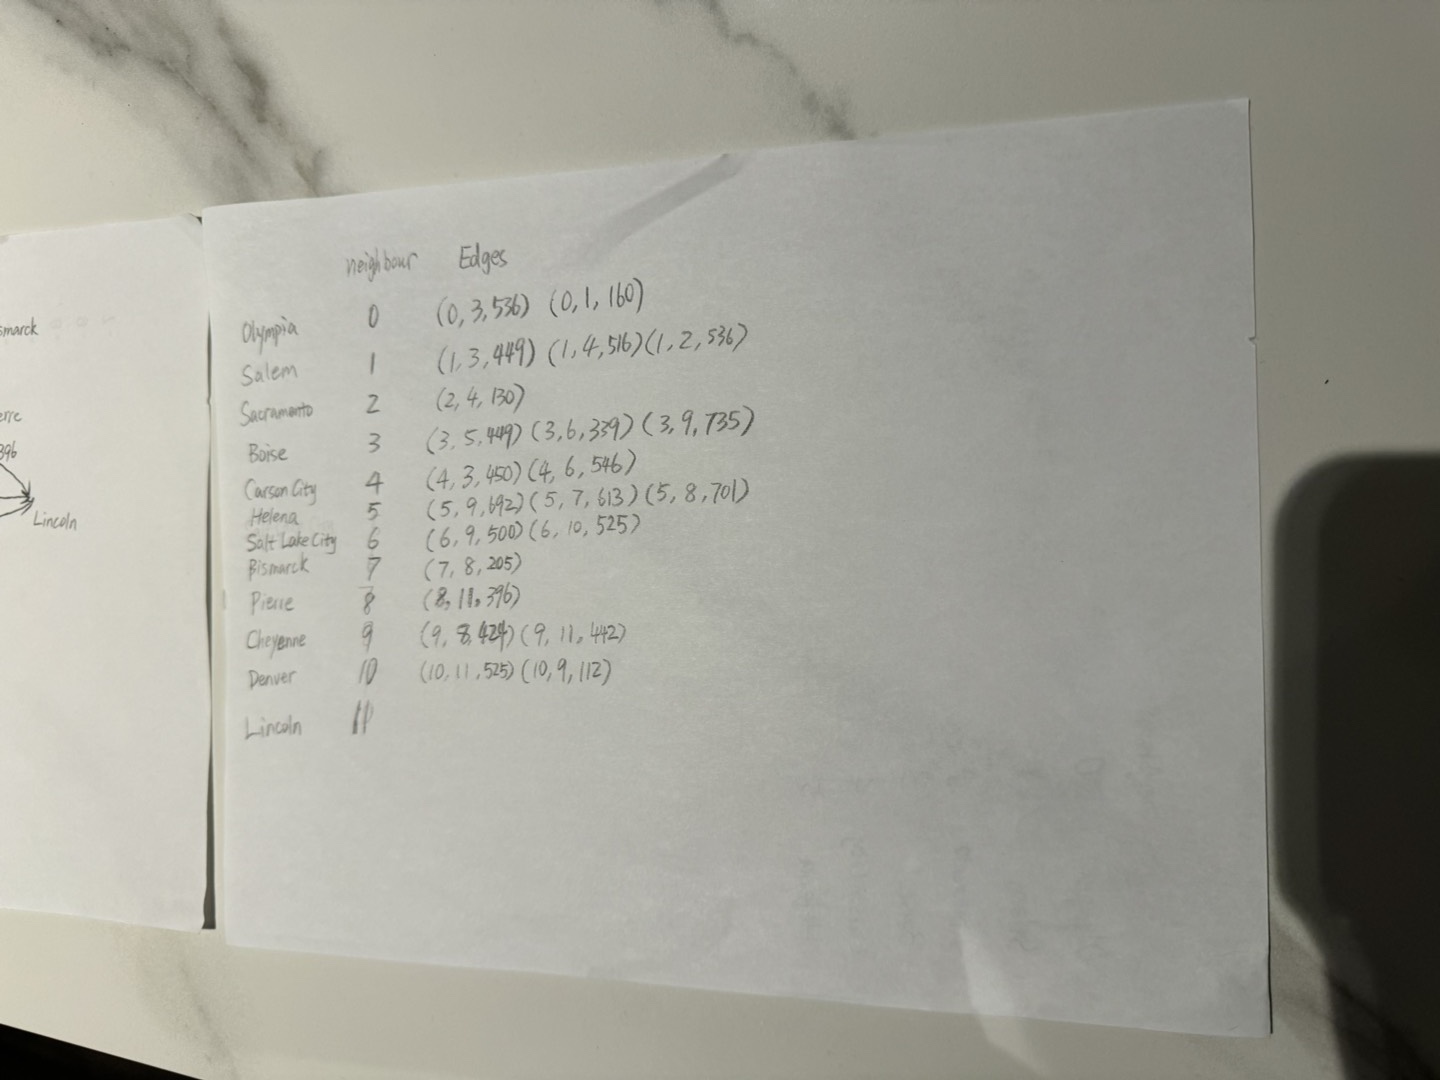 smarck
erre
396
Lincoln
neighbour Edges
Olympia 0 (0, 3, 536) (0, 1, 160)
Salem 1 (1, 3, 449) (1, 4, 516) (1, 2, 536)
Sacramento 2 (2, 4, 130)
Boise 3 (3, 5, 449) (3, 6, 339) (3, 9, 735)
Carson City 4 (4, 3, 450) (4, 6, 546)
Helena 5 (5, 9, 692) (5, 7, 613) (5, 8, 701)
Salt Lake City 6 (6, 9, 500) (6, 10, 525)
Bismarck 7 (7, 8, 205)
Pierre 8 (8, 11, 396)
Cheyenne 9 (9, 8, 424) (9, 11, 442)
Denver 10 (10, 11, 525) (10, 9, 112)
Lincoln 11